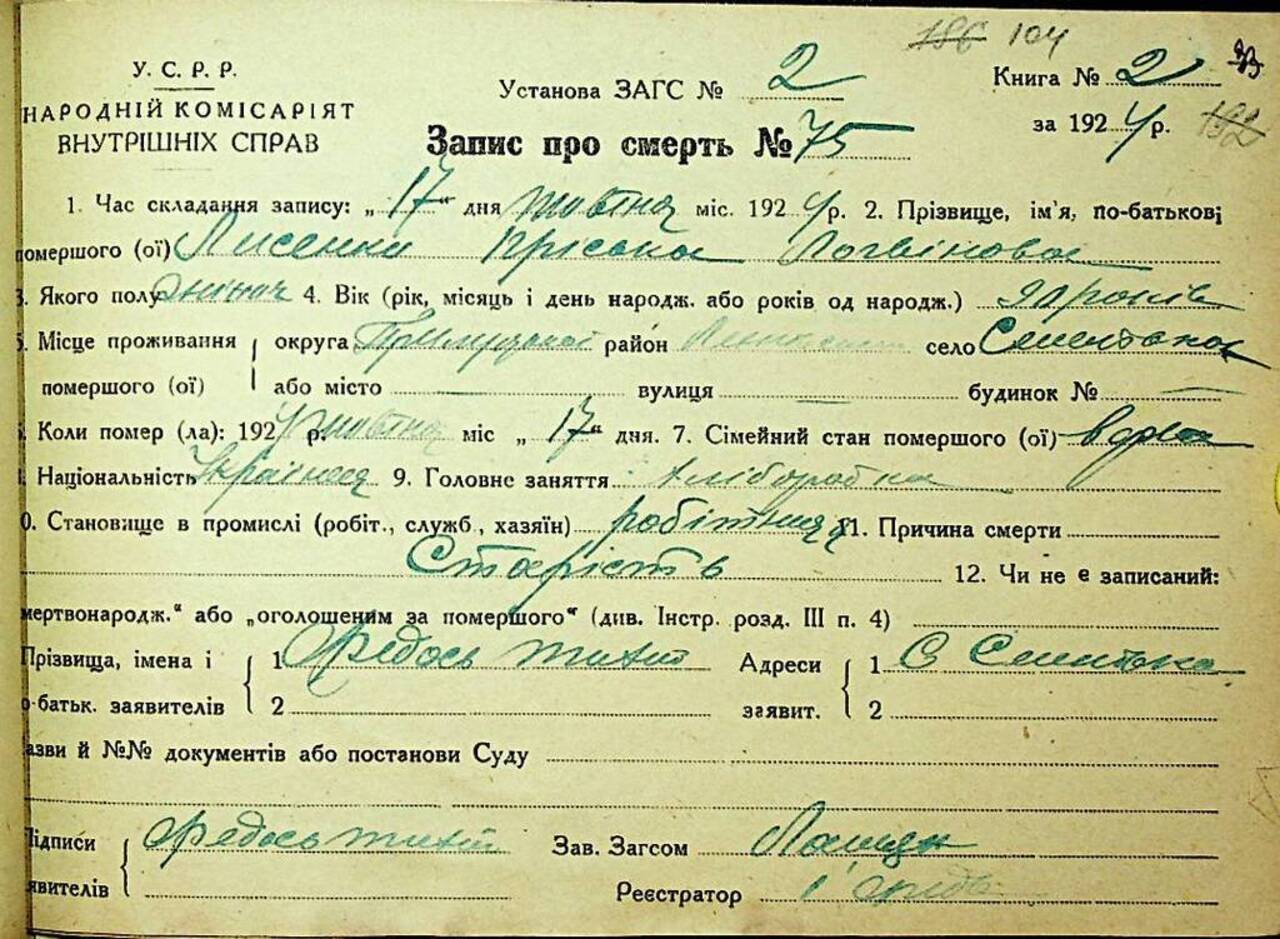 186 104
У. С. Р. Р.
НАРОДНІЙ КОМІСАРІЯТ
ВНУТРІШНІХ СПРАВ
Установа ЗАГС № 2
Книга № 2
за 1924 р. 132
Запис про смерть № 75
1. Час складання запису: „17“ дня жовтня міс. 1924 р. 2. Прізвище, ім'я, по-батькові
помершого (ої) Лисенко Пріська Логвінова
3. Якого полу жіноч 4. Вік (рік, місяць і день народж. або років од народж.) років
5. Місце проживання округа Прилуцької район село Сементовка
помершого (ої) або місто вулиця будинок №
Коли помер (ла): 1924 р. жовтня міс „17“ дня. 7. Сімейний стан помершого (ої) вдова
Національність Українка 9. Головне заняття хліборобка
0. Становище в промислі (робіт., служб., хазяїн) робітниця 11. Причина смерти
Старість 12. Чи не є записаний:
мертвонародж.“ або „оголошеним за помершого“ (див. Інстр. розд. III п. 4)
Прізвища, імена і 1 Федось Адреси 1 С
о-батьк. заявителів 2 заявит. 2
азви й №№ документів або постанови Суду
Підписи Федось Зав. Загсом
явителів Реєстратор